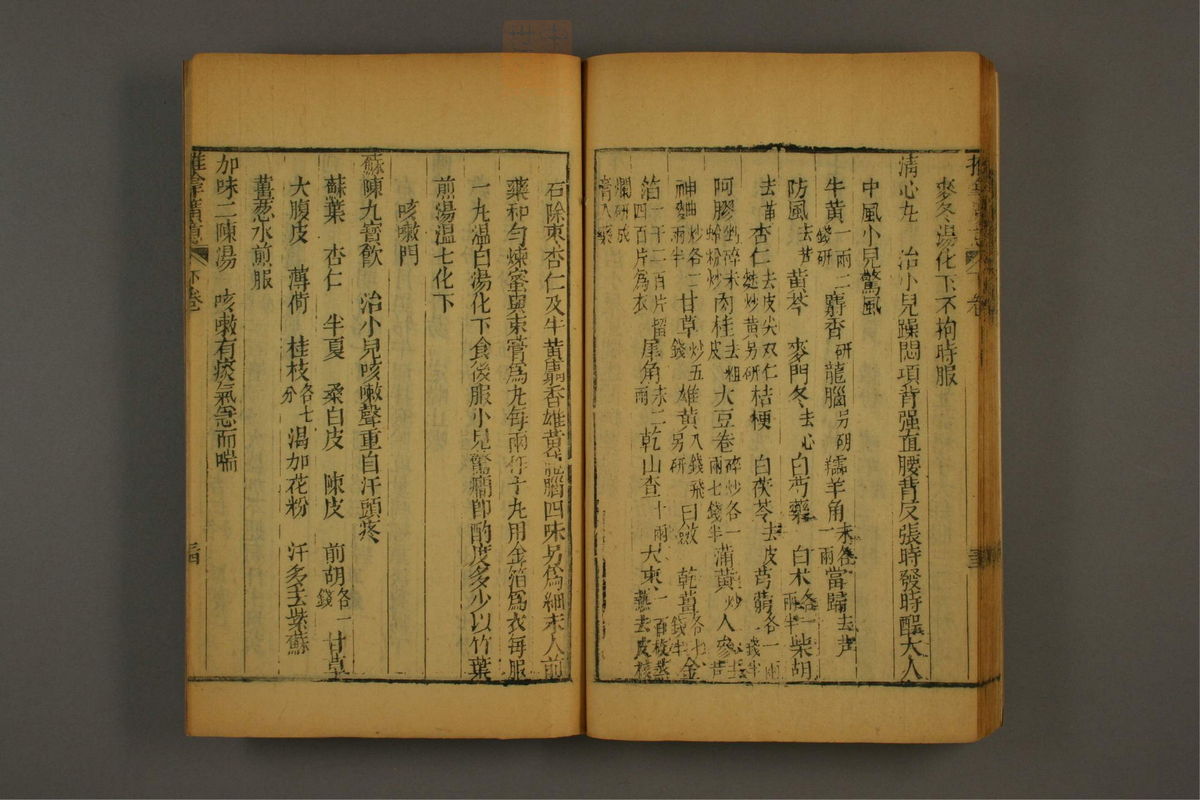 麥冬湯化下不拘時服
清心丸　治小兒躁悶項背强直腰背反張時發時醒大人
中風小兒驚風
牛黃一兩二錢研麝香研龍腦另研羚羊角末各一兩當歸去芦
防風去芦黃芩　麥門冬去心白芍藥　白朮各一兩半柴胡
去苗　杏仁去皮尖双仁麩炒黃另研桔梗　白茯苓去皮芎藭各一兩二錢半
阿膠剉碎末蛤粉炒肉桂去粗皮大豆卷碎炒各一兩七錢半蒲黃炒人參去芦
神曲炒各二兩半甘草炒五錢雄黃八錢飛另研白斂　乾薑各七錢半金
箔一千二百片留四百片爲衣犀角末二兩乾山查十兩大棗一百枚蒸熟去皮核
爛研成膏入藥
石除棗杏仁及牛黃麝香雄黃龍腦四味另爲細末入前
藥和勻煉蜜與棗膏爲丸每兩作十丸用金箔爲衣每服
一丸温白湯化下食後服小兒驚癎卽酌度多少以竹葉
煎湯温七化下
咳嗽門
蘇陳九寳飲　治小兒咳嗽聲重自汗頭疼
蘇葉　杏仁　半夏　桑白皮　陳皮　前胡各一錢甘草
大腹皮　薄荷　桂枝各七分渴加花粉　汗多去紫蘇
薑葱水煎服
加味二陳湯　咳嗽有痰氣急而喘
下卷